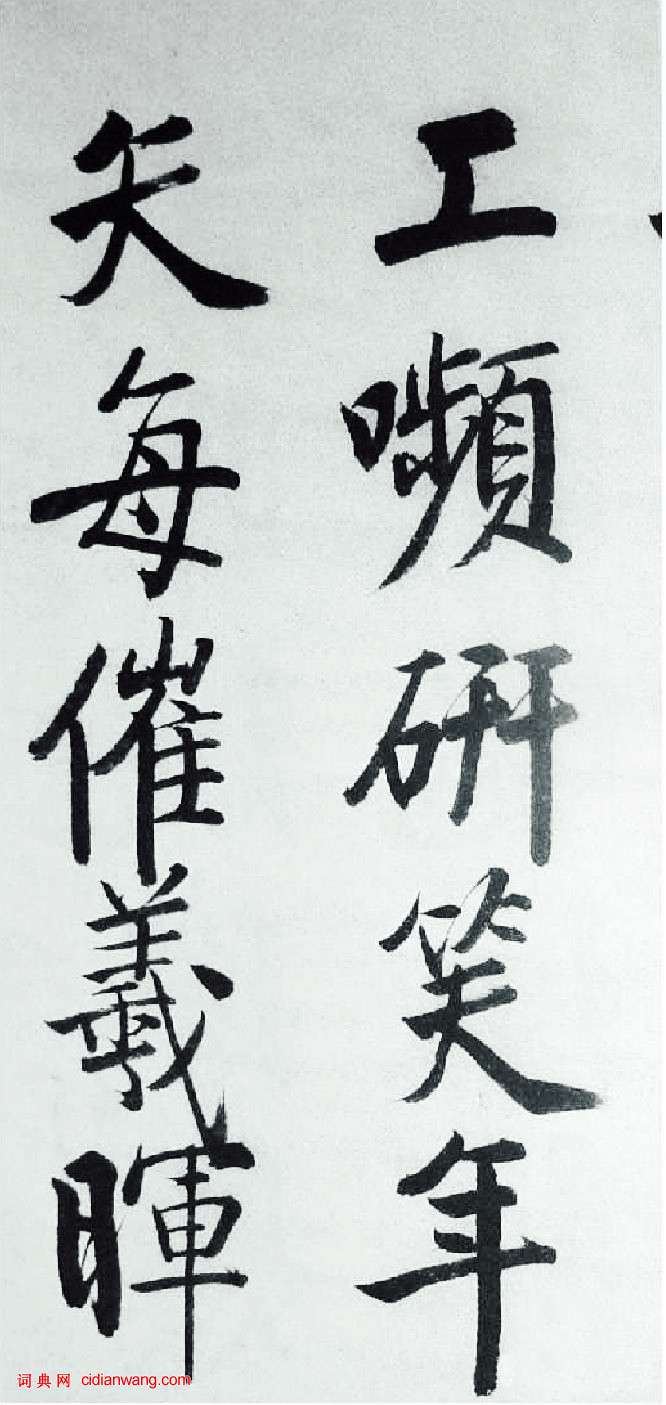 工嚬研笑年
矢每催羲暉
词典网 cidianwang.com